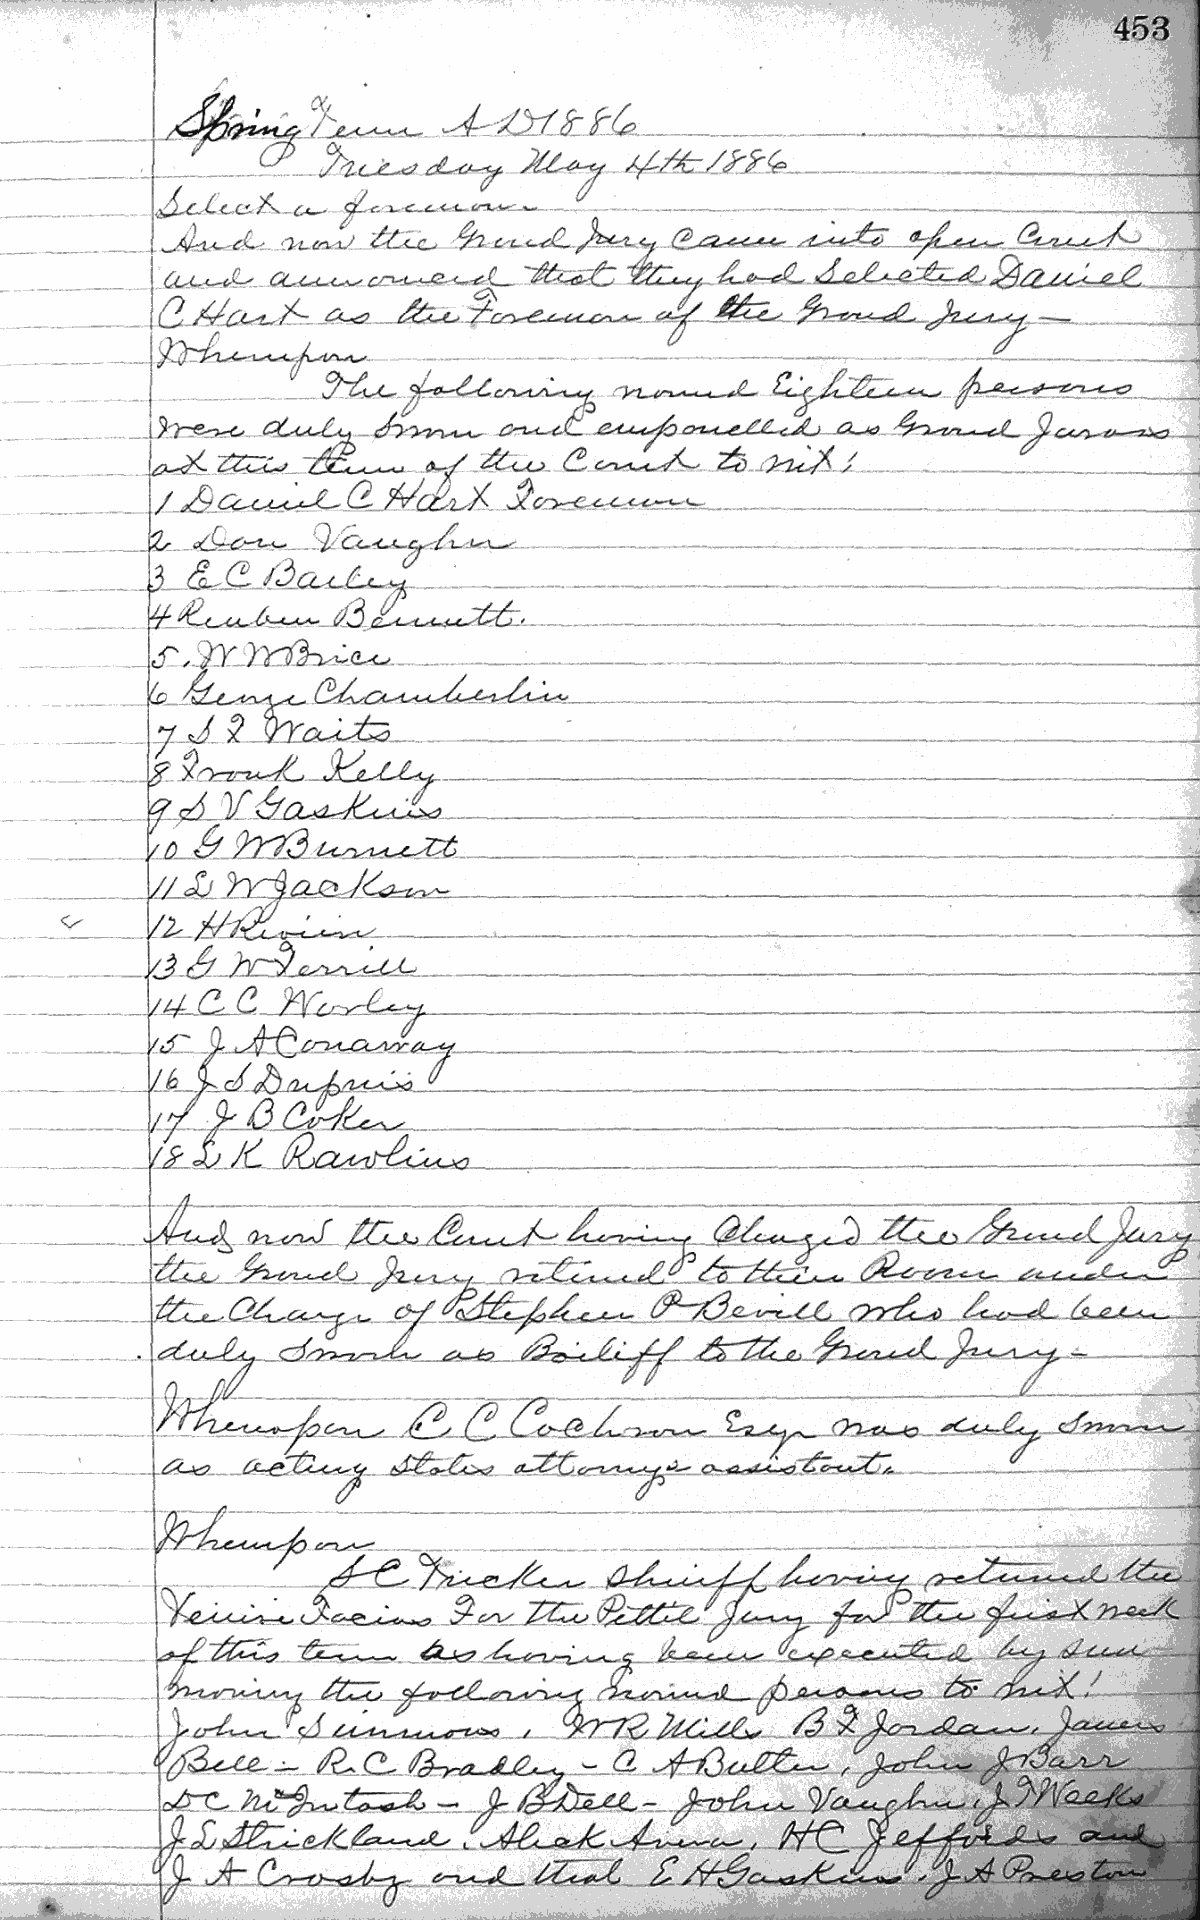 453
Spring Term A D 1886
Tuesday May 4th 1886
Select a foreman
And now the Grand Jury came into open Court
and announced that they had Selected Daniel
C Hart as the Foreman of the Grand Jury —
Whereupon
The following named Eighteen persons
were duly sworn and empanelled as Grand Jurors
at this term of the Court to wit!
1 Daniel C Hart Foreman
2 Don Vaughn
3 E C Bailey
4 Reuben Bennett.
5. W W Brice
6 George Chamberlin
7 S F Waits
8 Frank Kelly
9 S V Gaskins
10 G W Burnett
11 L W Jackson
12 H
13 G W Terrill
14 C C Worley
15 J A Conaway
16 J S Dupuis
17 J B Coker
18 L K Rawlins
And now the Court having Charged the Grand Jury
the Grand Jury retired to their Room under
the Charge of Stephen P Bevill who had been
duly sworn as Bailiff to the Grand Jury -
Whereupon C C Cochran Esqr was duly sworn
as acting States attorneys assistant.
Whereupon
S C Tucker Sheriff having returned the
Venire Facias For the Pettit Jury for the first week
of this term as having been executed by sum
moning the following named persons to wit!
John Simmons, W R Mills B F Jordan, James
Bell - R. C Bradley - C A Butler, John J Barr
D C McIntosh - J B Dell - John Vaughn, J T Weeks
J L Strickland, Aleck, H C Jeffords and
J A Crosby and that E H Gaskins, J A Preston